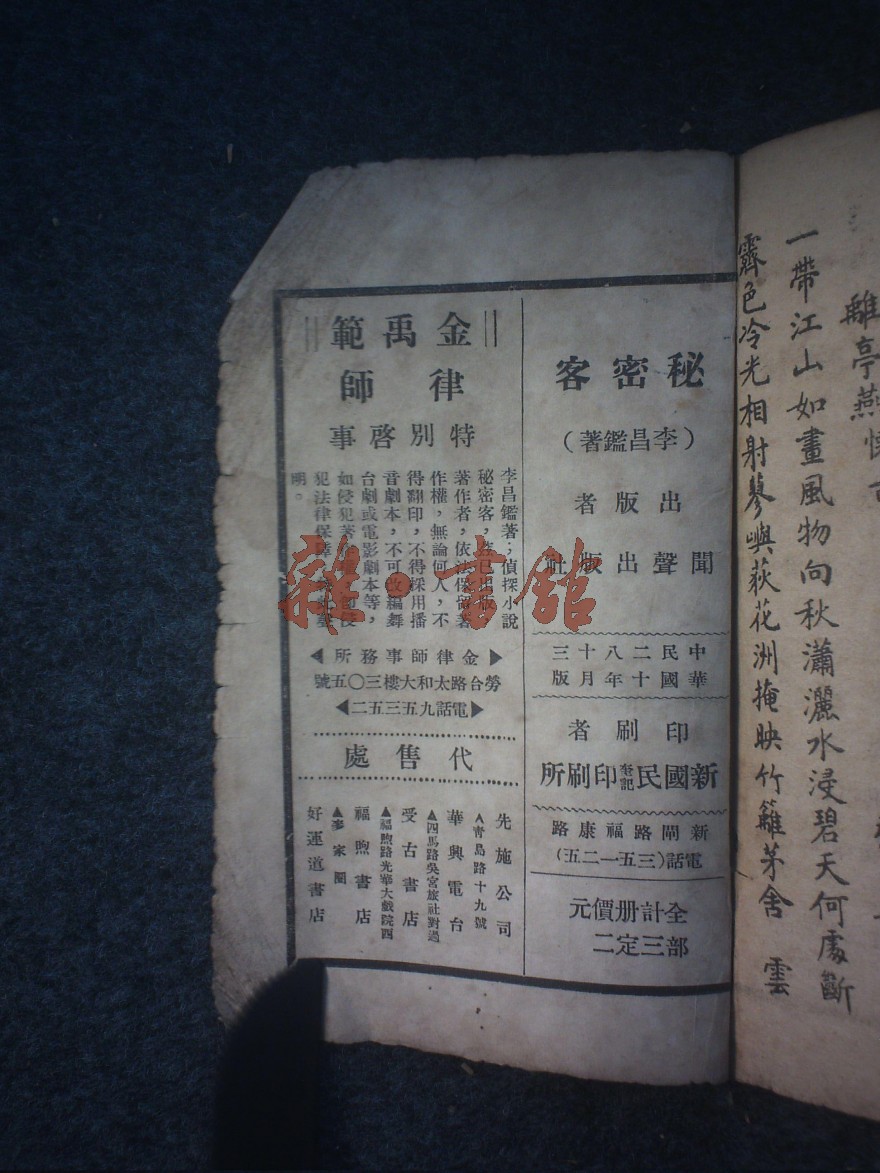 離亭燕懷古
一帶江山如畫風物向秋瀟灑水浸碧天何處斷
霽色冷光相射蓼嶼荻花洲掩映竹籬茅舍 雲
秘密客
(李昌鑑著)
出版者
聞聲出版社
中華民國二十八年十月三版
印刷者
新國民奎記印刷所
新閘路福康路
電話(三五一二五)
全部計三册定價二元
金禹範
律師
特別啓事
李昌鑑著;偵探小說
秘密客,業已出版
著作者,依法保留著
作權,無論何人,不
得翻印,不得採用播
音劇本,不可改編舞
台劇或電影劇本等,
如侵犯著作
犯法律保障
明。
金律師事務所
勞台路太和大樓三〇五號
電話九五三五二
代售處
先施公司
青島路十九號
華興電台
四馬路吳宮旅社對過
受古書店
福煦路光華大戲院四
福煦書店
麥家圈
好運道書店
雜·書館